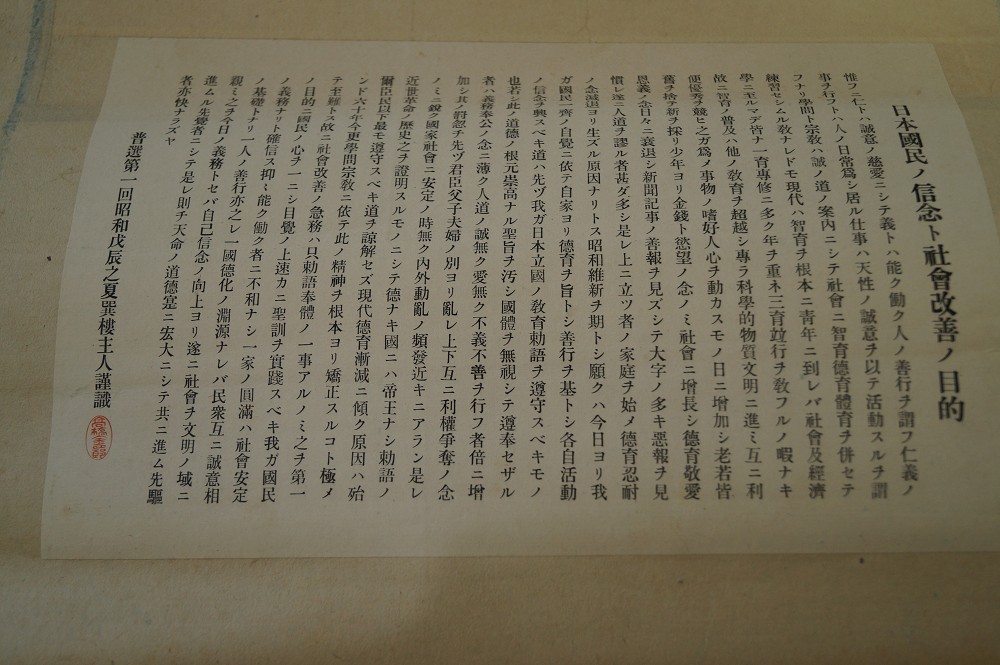 日本國民ノ信念ト社會改善ノ目的
惟フニ仁トハ誠意ノ慈愛ニシテ義トハ能ク働ク人ノ善行ヲ謂フ仁義ノ
事ヲ行フトハ人ノ日常爲シ居ル仕事ハ天性ノ誠意ヲ以テ活動スルヲ謂
フナリ學問ト宗敎ハ誠ノ道ノ案内ニシテ社會ニ智育德育體育ヲ併セテ
練習セシムル敎ナレドモ現代ハ智育ヲ根本ニ靑年ニ到レバ社會及經濟
學ニ至ルマデ皆ナ一育專修ニ多ク年ヲ重ネ三育竝行ヲ敎フルノ暇ナキ
故ニ智育ノ普及ハ他ノ敎育ヲ超越シ專ラ科學的物質文明ニ進ミ互ニ利
便優秀ヲ競ヒ之ガ爲メ事物ノ嗜好人心ヲ動カスモノ日ニ增加シ老若皆
舊ヲ捨テ新ヲ採リ少年ヨリ金錢ト慾望ノ念ノミ社會ニ增長シ德育敬愛
恩義ノ念日々ニ衰退シ新聞記事ノ善報ヲ見ズシテ大字ノ多キ惡報ヲ見
慣レ遂ニ人道ヲ謬ル者甚ダ多シ是レ上ニ立ツ者ノ家庭ヲ始メ德育忍耐
ノ念減退ヨリ生ズル原因ナリトス昭和維新ヲ期トシ願クハ今日ヨリ我
ガ國民一齊ノ自覺ニ依テ自家ヨリ德育ヲ旨トシ善行ヲ基トシ各自活動
ノ信念ヲ興スベキ道ハ先ヅ我ガ日本立國ノ敎育勅語ヲ遵守スベキモノ
也若シ此ノ道德ノ根元崇高ナル聖旨ヲ汚シ國體ヲ無視シテ遵奉セザル
者ハ義務奉公ノ念ニ薄ク人道ノ誠無ク愛無ク不義不善ヲ行フ者倍ニ增
加シ其ノ罰忽チ先ヅ君臣父子夫婦ノ別ヨリ亂レ上下互ニ利權爭奪ノ念
ノミニ銳ク國家社會ニ安定ノ時無ク內外動亂ノ頻發近キニアラン是レ
近世革命ノ歷史之ヲ證明スルモノニシテ德ナキ國ニハ帝王ナシ勅語ノ
爾臣民以下最モ遵守スベキ道ヲ諒解セズ現代德育漸減ニ傾ク原因ハ殆
ンド六十年今更學問宗敎ニ依テ此ノ精神ヲ根本ヨリ矯正スルコト極メ
テ至難トス故ニ社會改善ノ急務ハ只勅語奉體ノ一事アルノミ之ヲ第一
ノ目的ニ國民ノ心ヲ一ニシ目覺ノ上速カニ聖訓ヲ實踐スベキ我ガ國民
ノ義務ナリト確信ス抑〻能ク働ク者ニ不和ナシ一家ノ圓滿ハ社會安定
ノ基礎トナリ一人ノ善行亦之レ一國德化ノ淵源ナレバ民衆互ニ誠意相
親ミ之ヲ今日ノ義務トセバ自己信念ノ向上ヨリ遂ニ社會ヲ文明ノ域ニ
進ムル先覺者ニシテ是レ則チ天命ノ道德寔ニ宏大ニシテ共ニ進ム先驅
者亦快ナラズヤ
普選第一回昭和戊辰之夏巽樓主人謹識